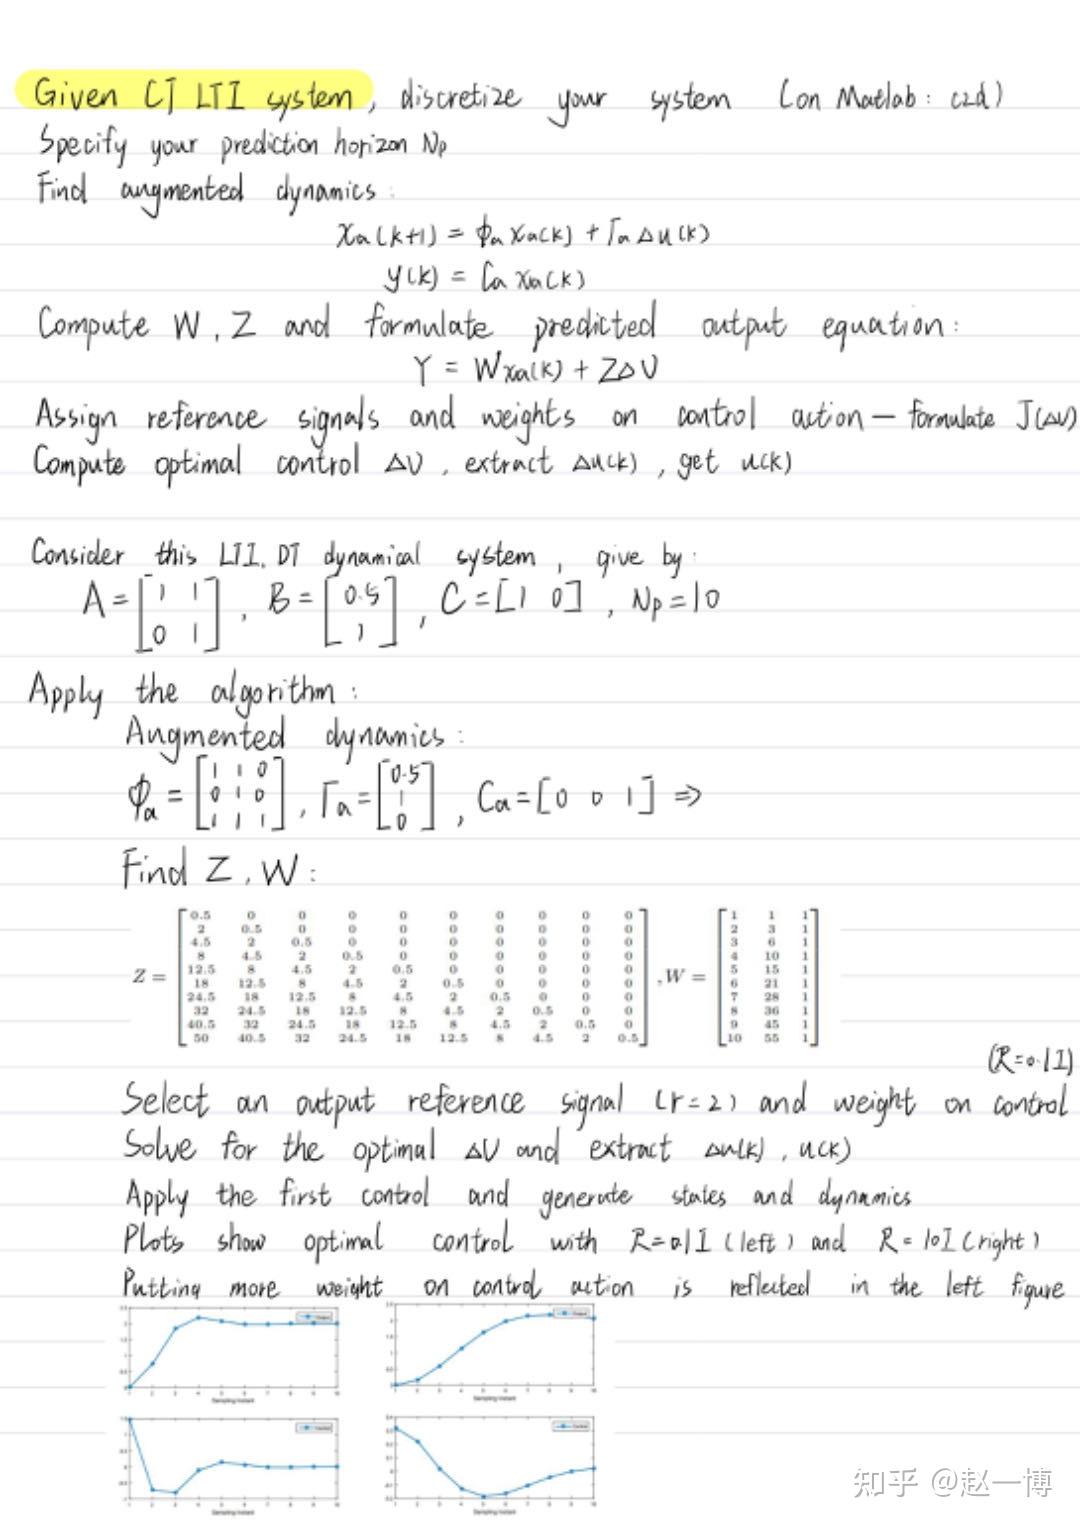 Given CT LTI system, discretize your system (on Matlab: c2d)
Specify your prediction horizon Np
Find augmented dynamics:
xa(k+1) = ϕa xa(k) + Γa Δu(k)
y(k) = Ca xa(k)
Compute W, Z and formulate predicted output equation:
Y = Wxa(k) + ZΔU
Assign reference signals and weights on control action — formulate J(ΔU)
Compute optimal control ΔU, extract Δu(k), get u(k)
Consider this LTI, DT dynamical system, give by:
A = [1 1; 0 1], B = [0.5; 1], C = [1 0], Np = 10
Apply the algorithm:
Augmented dynamics:
ϕa = [1 1 0; 0 1 0; 1 1 1], Γa = [0.5; 1; 0], Ca = [0 0 1] ⇒
Find Z, W:
0.5 0 0 0 0 0 0 0 0 0 1 1 1
2 0.5 0 0 0 0 0 0 0 0 2 3 1
4.5 2 0.5 0 0 0 0 0 0 0 3 6 1
8 4.5 2 0.5 0 0 0 0 0 0 4 10 1
Z = 12.5 8 4.5 2 0.5 0 0 0 0 0 , W = 5 15 1
18 12.5 8 4.5 2 0.5 0 0 0 0 6 21 1
24.5 18 12.5 8 4.5 2 0.5 0 0 0 7 28 1
32 24.5 18 12.5 8 4.5 2 0.5 0 0 8 36 1
40.5 32 24.5 18 12.5 8 4.5 2 0.5 0 9 45 1
50 40.5 32 24.5 18 12.5 8 4.5 2 0.5 10 55 1
(R=0.1I)
Select an output reference signal (r=2) and weight on control
Solve for the optimal ΔU and extract Δu(k), u(k)
Apply the first control and generate states and dynamics
Plots show optimal control with R=0.1I (left) and R=10I (right)
Putting more weight on control action is reflected in the left figure
Sampling Instant
Sampling Instant
Sampling Instant
Sampling Instant
知乎 @赵一博